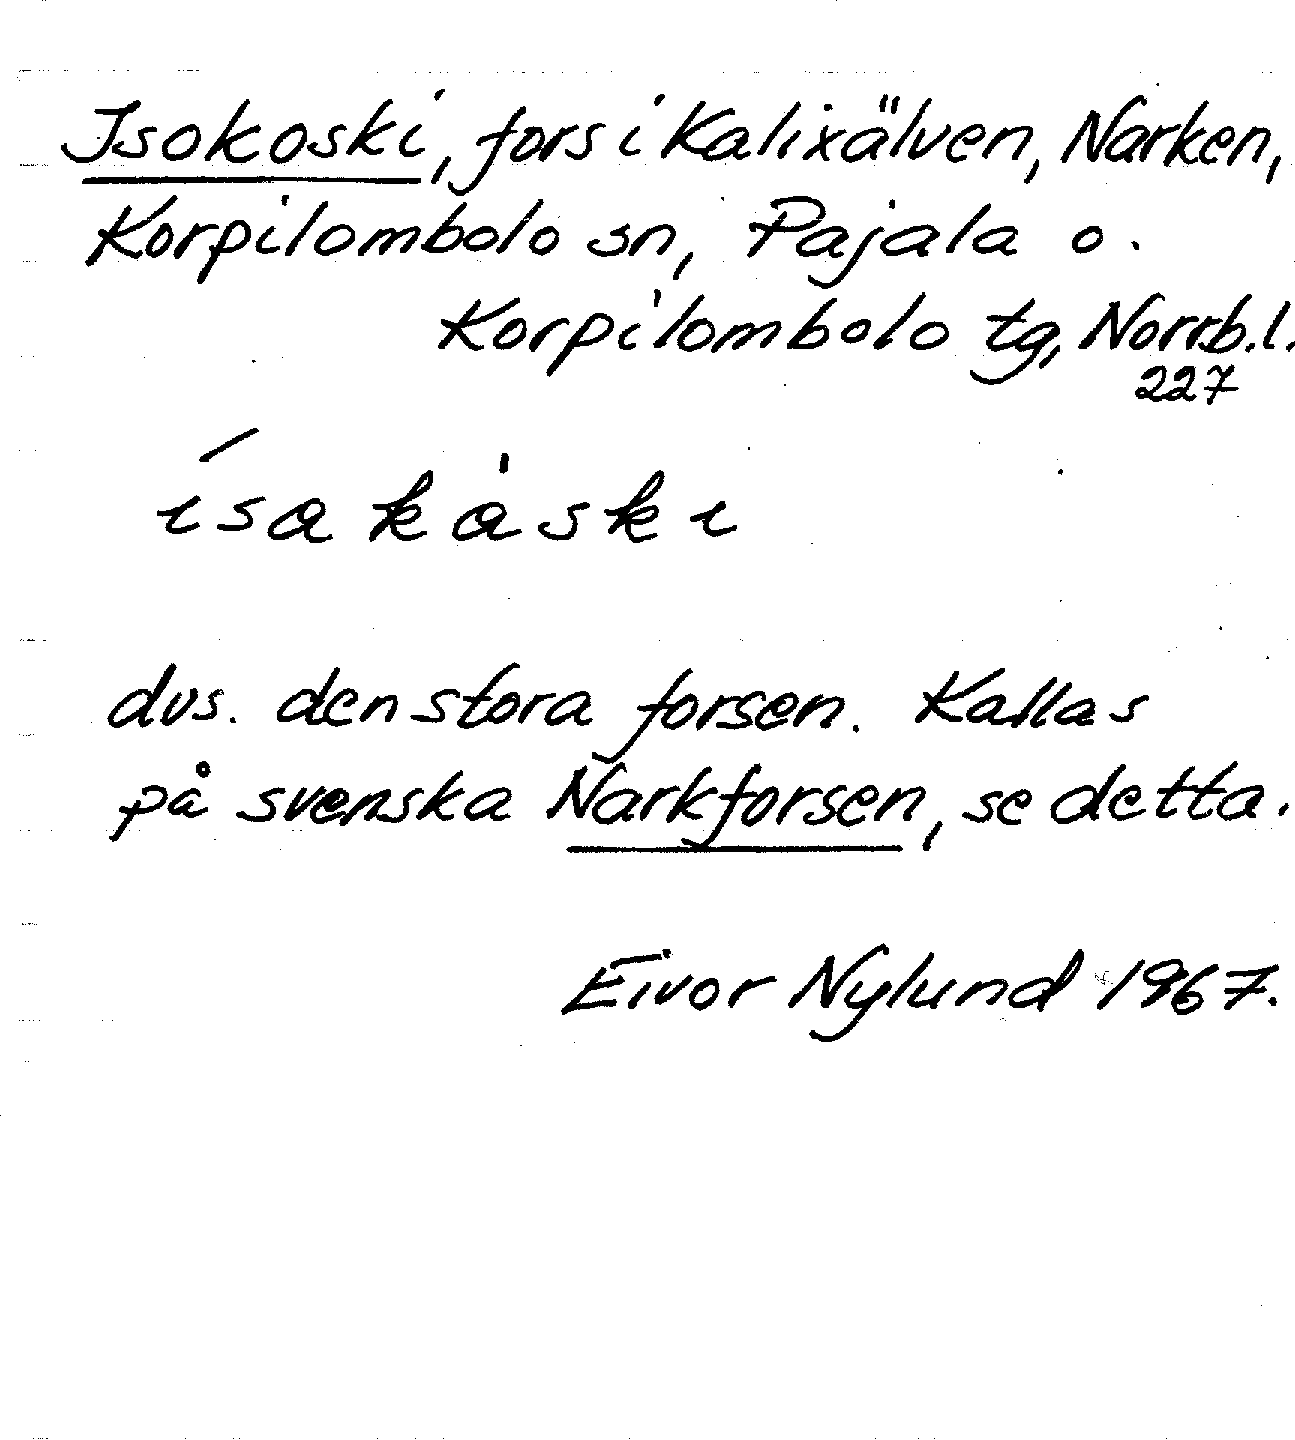 Isokoski, fors i Kalixälven, Narken,
Korpilombolo sn, Pajala o.
Korpilombolo tg, Norrb.l.
227
ísakåski
dvs. den stora forsen. Kallas
på svenska Narkforsen, se detta.
Eivor Nylund 1967.